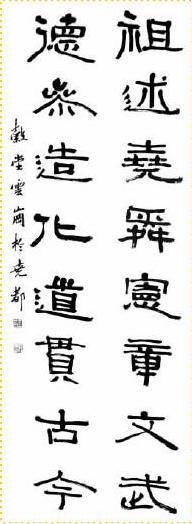 祖述堯舜憲章文武
德參造化道貫古今
穀堂雲崗於堯都